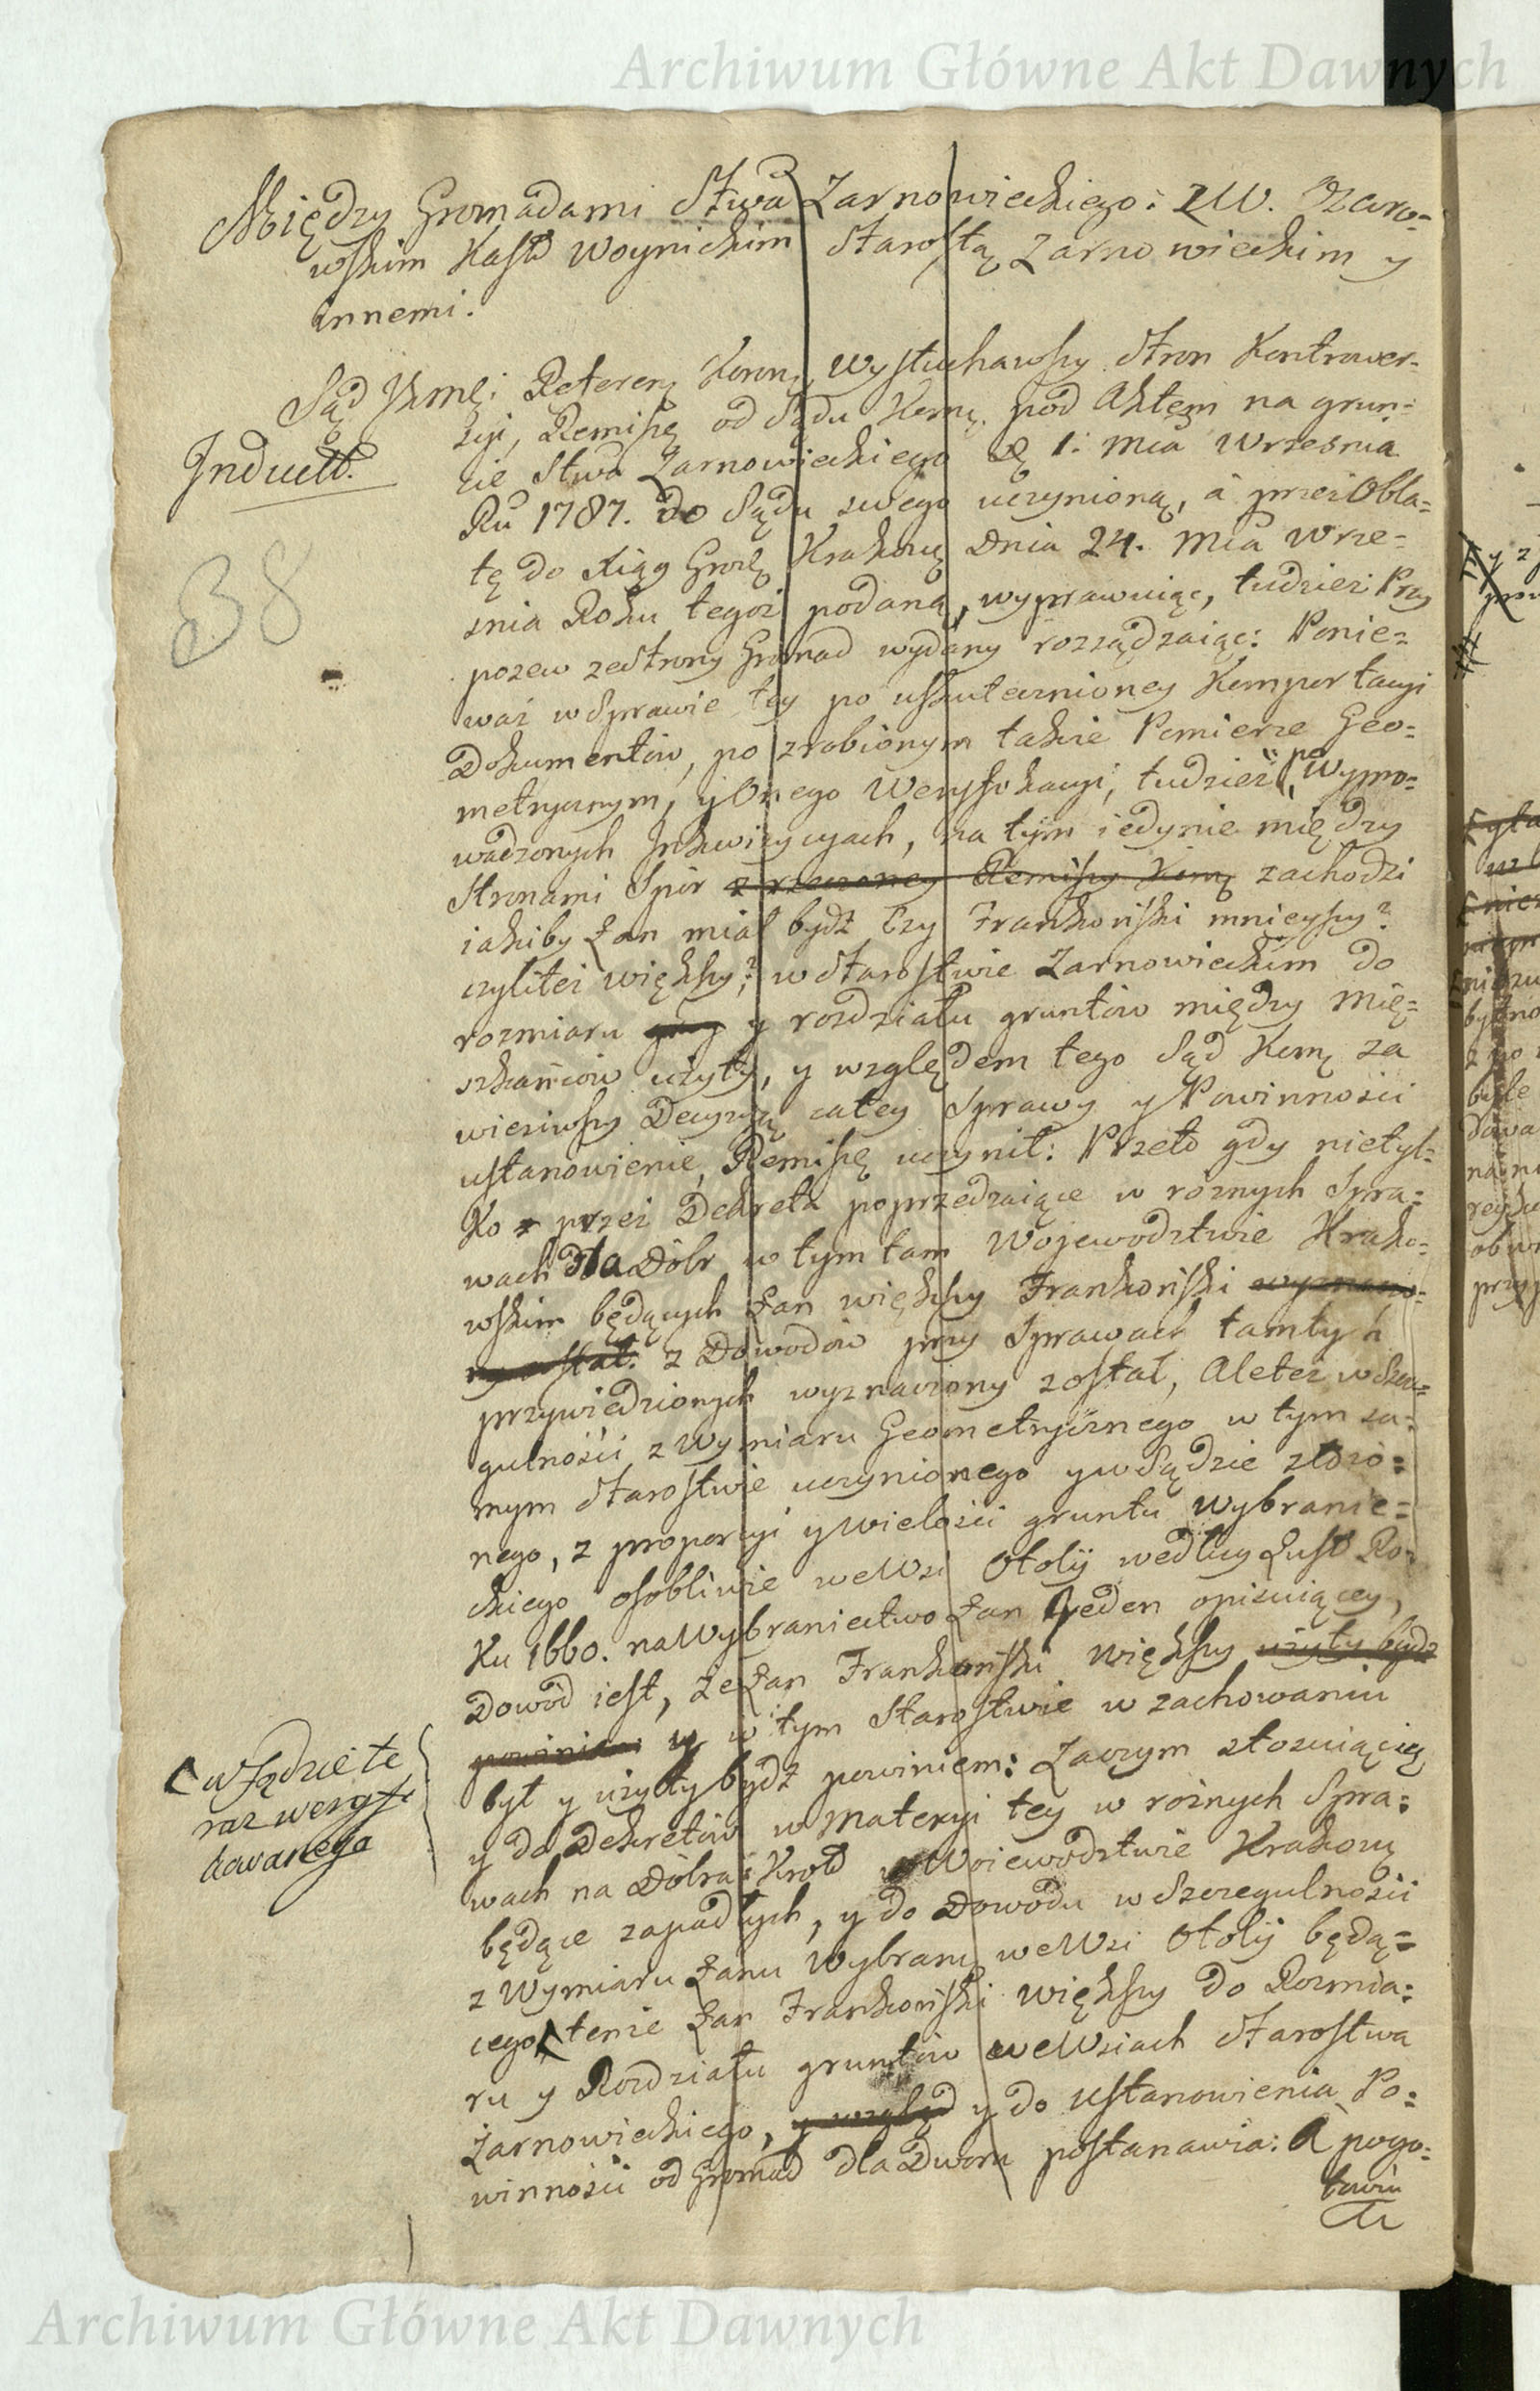 Archiwum Główne Akt Dawnych
Między Gromadami Stwa Zarnowieckiego: z W. Ozaro=
wskim Kaszt Woynickim Starostą Zarnowieckim y
innemi.
Sąd JKmci Referen Koronn, wysłuchawszy Stron Kontrower=
syi, Remissę od Sądu Komm. pod Aktem na grun=
Induct.
cie Stwa Zarnowieckiego D. 1. Mca Wrzesnia
Ru 1787. do Sądu swego uczynioną, a przez Obla=
tę do Xiąg Grodz Krakow Dnia 24. Mca Wrze=
38
snia Roku tegoż podaną, wyprawuiąc, tudzież Przy
pozew ze Strony Gromad wydany rozsądzaiąc: Ponie=
waż w Sprawie tey po uskutecznioney Komportacyi
Dokumentów, po zrobionym także Pomierze Geo=
metrycznym, y Onego Weryfikacyi, tudzież po Wypro=
wadzonych Inkwizycyach, na tym iedynie między
Stronami Spór z rzeczoney Remissy Komm zachodzi
iakiby Łan miał bydź czy Frankoński mnieyszy?
czyliteż większy? w Starostwie Zarnowieckim do
rozmiaru y rozdziału gruntów między Mie=
szkańców użyty, y względem tego Sąd Komm za
wiesiwszy Decyzyą całey Sprawy y Powinności
ustanowienie, Remissę uczynił: Przeto gdy nietyl=
ko przez Dekreta poprzedzaiące w roznych Spra=
wach dla Dóbr w tym tam Wojewodztwie Krako=
wskim będących Łan większy Frankoński wyznaczo=
ny został. z Dowodów przy Sprawach tamtych
przywiedzionych wyznaczony został, Ale też w Szcze=
gulności z Wymiaru Geometrycznego w tym sa=
mym Starostwie uczynionego y w Sądzie złożo=
nego, z proporcyi y wielości gruntu Wybranie=
ckiego osobliwie we Wsi Otoly według Lust Ro=
ku 1660. na Wybraniectwo Łan Jeden opisuiącey,
Dowod iest, że Łan Frankoński większy użyty bydź
powinien w tym Starostwie w zachowaniu
był y użyty bydź powinien: Zaczym stosuiąc się
y do Dekretów w Materyi tey w róznych Spra=
wach na Dobra Krol w Woiewodztwie Krakow
będące zapadłych, y do Dowodu w Szczegulności
z Wymiaru Łanu Wybran we Wsi Otoly będą=
w Sądzie te
raz weryfi
kowanego
cego tenże Łan Frankoński większy do Rozmia=
ru y Rozdziału gruntów we Wsiach Starostwa
Żarnowieckiego, y wzgląd y do Ustanowienia Po=
winności od Gromad dla Dworu postanawia: A pogo=
towiu
Archiwum Główne Akt Dawnych